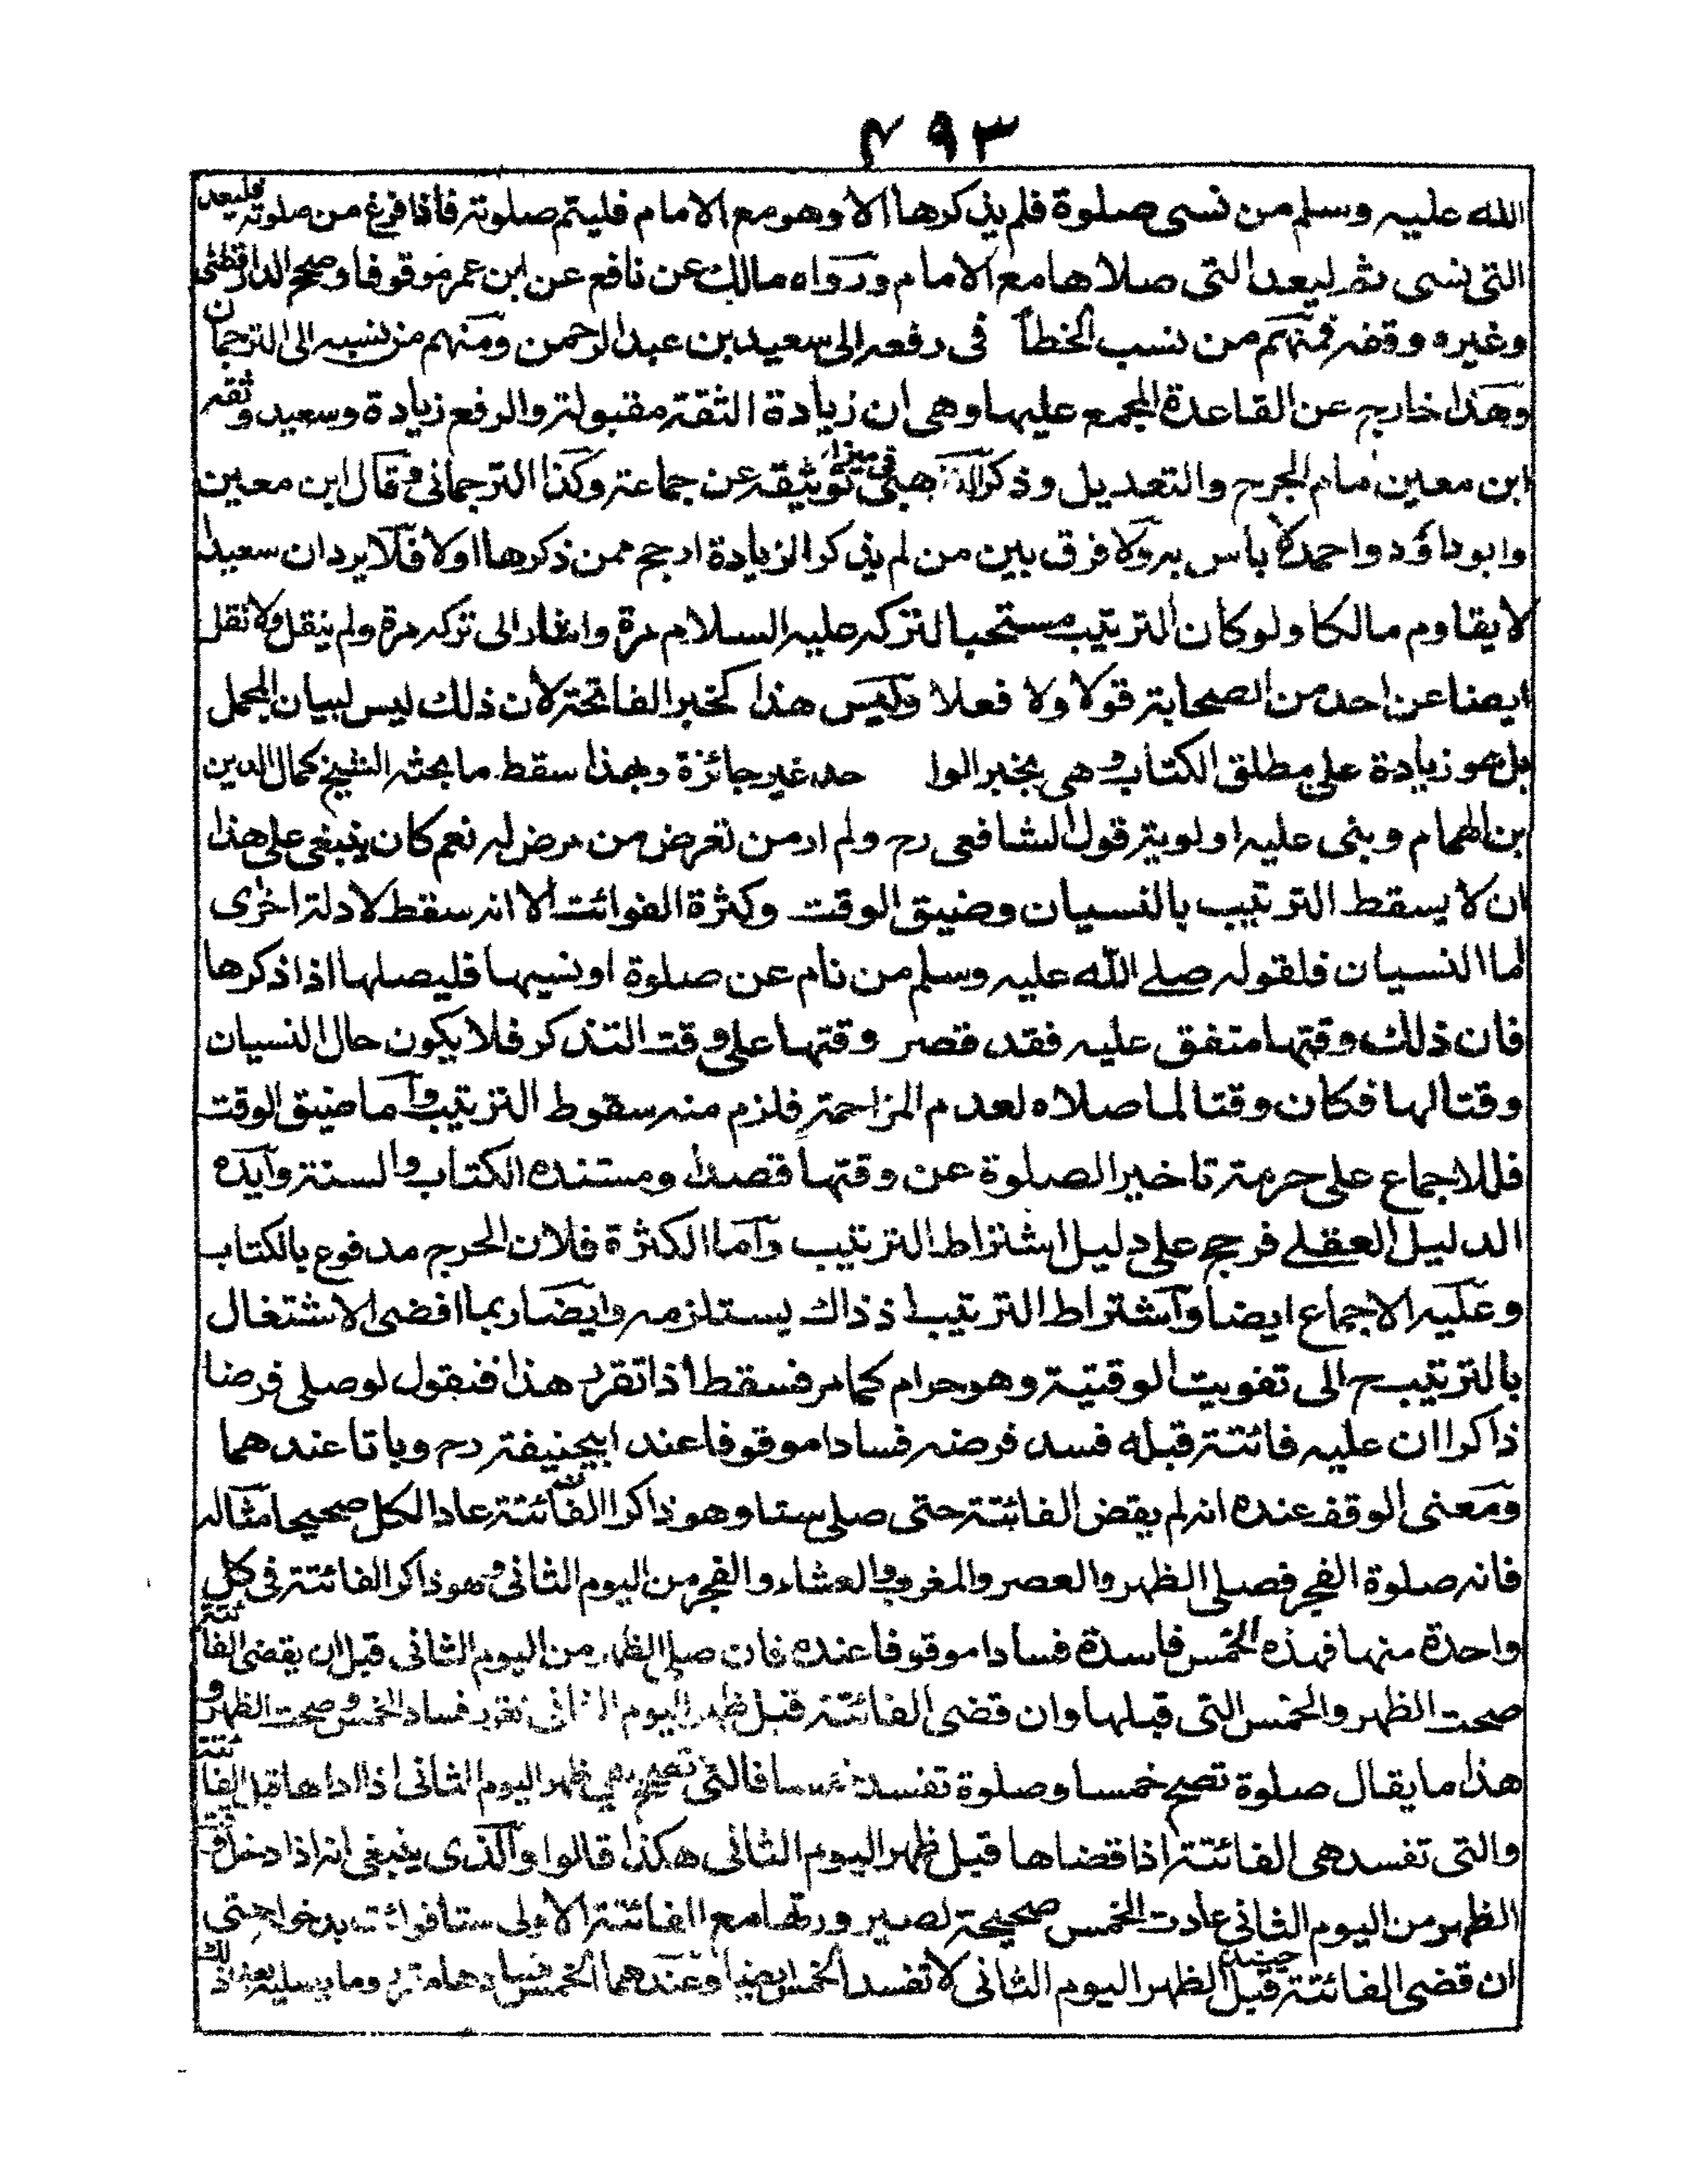 ۴۹۳
الله عليه وسلم من نسى صلوة فلم يذكرها الا وهو مع الامام فليتم صلوته فاذا فرغ من صلوته فليعد
التى نسى ثم ليعد التى صلاها مع الامام ورواه مالك عن نافع عن ابن عمر موقوفا وصحح الدارقطنى
وغيره وقفه فمنهم من نسب الخطأ فى رفعه الى سعيد بن عبد الرحمن ومنهم من نسبه الى الترجمان
وهذا خارج عن القاعدة المجمع عليها وهى ان زيادة الثقة مقبولة والرفع زيادة وسعيد وثقه
ابن معين امام الجرح والتعديل وذكر الذهبى فى ميزانه توثيقه عن جماعة وكذا الترجمانى وقال ابن معين
وابو داؤد واحمد لا باس به ولا فرق بين من لم يذكر الزيادة ارجح ممن ذكرها اولا فلا يرد ان سعيدا
لا يقاوم مالكا ولو كان الترتيب مستحبا لتركه عليه السلام مرة واشار الى تركه مرة ولم ينقل ولا نقل
ايضا عن احد من الصحابة قولا ولا فعلا وليس هذا كخبر الفاتحة لان ذلك ليس لبيان المجمل
بل هو زيادة على مطلق الكتاب وهى بخبر الوا حد غير جائزة وبهذا سقط ما بحثه الشيخ كمال الدين
بن الهمام وبنى عليه اولوية قول الشافعى رح ولم ار من تعرض من مرض له نعم كان ينبغى على هذا
ان لا يسقط الترتيب بالنسيان وضيق الوقت وكثرة الفوائت الا انه سقط لادلة اخرى
اما النسيان فلقوله صلى الله عليه وسلم من نام عن صلوة او نسيها فليصلها اذا ذكرها
فان ذلك وقتها متفق عليه فقد قصر وقتها على وقت التذكر فلا يكون حال النسيان
وقتا لها فكان وقتا لما صلاه لعدم المزاحمة فلزم منه سقوط الترتيب واما ضيق الوقت
فللاجماع على حرمة تاخير الصلوة عن وقتها قصدا ومستنده الكتاب والسنة وايده
الدليل العقلى فرجح على دليل اشتراط الترتيب واما الكثرة فلان الحرج مدفوع بالكتاب
وعليه الاجماع ايضا واشتراط الترتيب اذ ذاك يستلزمه وايضا ربما افضى الاشتغال
بالترتيب ح الى تفويت الوقتية وهو حرام كما مر فسقط اذا تقرر هذا فنقول لو صلى فرضا
ذاكرا ان عليه فائتة قبله فسد فرضه فسادا موقوفا عند ابيحنيفة رح وباتا عندهما
ومعنى الوقف عنده انه لم يقض الفائتة حتى صلى ستا وهو ذاكر الفائتة عاد الكل صحيحا مثاله
فاته صلوة الفجر فصلى الظهر والعصر والمغرب والعشاء والفجر من اليوم الثانى وهو ذاكر الفائتة فى كل
واحدة منها فهذه الخمس فاسدة فسادا موقوفا عنده فان صلى الظهر من اليوم الثانى قبل ان يقضى الفائتة
صحت الظهر والخمس التى قبلها وان قضى الفائتة قبل ظهر اليوم الثانى تقرر فساد الخمس وصحت الظهر و
هذا ما يقال صلوة تصح خمسا وصلوة تفسد خمسا فالتى تصحح هى ظهر اليوم الثانى اذا اداها قبل الفائتة
والتى تفسد هى الفائتة اذا قضاها قبل ظهر اليوم الثانى هكذا قالوا والذى ينبغى انه اذا دخل وقت
الظهر من اليوم الثانى عادت الخمس صحيحة لصيرورتها مع الفائتة الاولى ستا فوائت حتى
ان قضى الفائتة حينئذ قبل الظهر اليوم الثانى لا تفسد الخمس ايضا وعندهما الخمس وما يصليه بعد ذلك